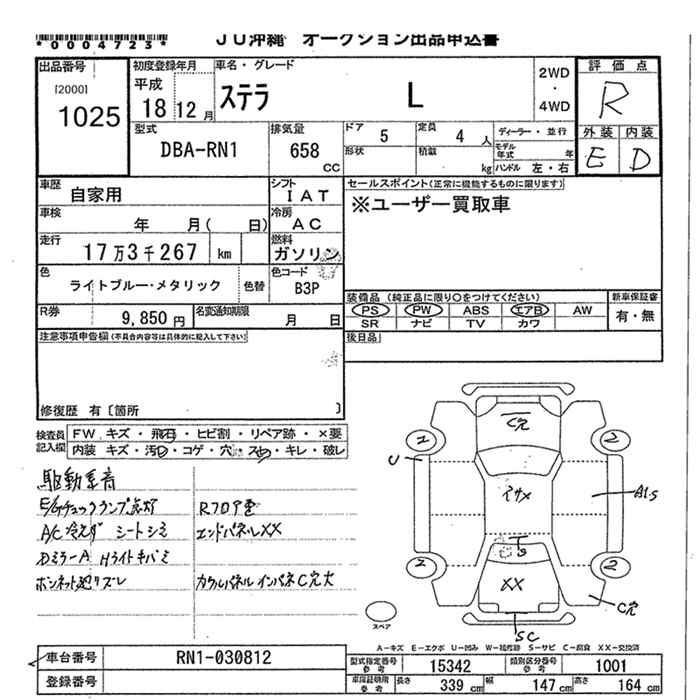 *0004723*
JU沖縄 オークション出品申込書
出品番号 初度登録年月 車名・グレード 評価点
[2000] 平成 2WD
1025 18 12月 ステラ L ・ R
4WD
型式 排気量 ドア 5 定員 4 人 ディーラー・並行 外装 内装
DBA-RN1 658 CC 形状 積載 kg モデル年式 年 E D
ハンドル 左・右
車歴 自家用 シフト IAT セールスポイント(正常に機能するものに限ります)
車検 年 月( 日) 冷房 AC ※ユーザー買取車
走行 17万3千267 km 燃料 ガソリン
色 ライトブルー・メタリック 色替 色コード B3P
R券 9,850円 名変通知期限 月 日
装備品(純正品に限り○をつけてください) 新車保証書
PS PW ABS エアB AW 有・無
SR ナビ TV カワ
注意事項申告欄(不具合内容等は具体的に記入して下さい) 後日品
修復歴 有〔箇所 〕
検査員記入欄 FW キズ・飛石・ヒビ割・リペア跡・×要
内装 キズ・汚れ・コゲ・穴・スレ・キレ・破レ
駆動系音
E/Gチェックランプ点灯 Rフロア歪
A/C冷えず シートシミ エンドパネルXX
DミラーA Hライトキバミ
ボンネット廻りズレ カウルパネル インパネC穴大
C穴
2 2
U
アサメ A1.5
2 2
XX
C穴
SC
スペア
A−キズ E−エクボ U−凹み W−補修跡 S−サビ C−腐食 XX−交換済
車台番号 RN1-030812 型式指定番号 参考 15342 類別区分番号 参考 1001
登録番号 車庫証明用 参考 長さ 339 cm 幅 147 cm 高さ 164 cm